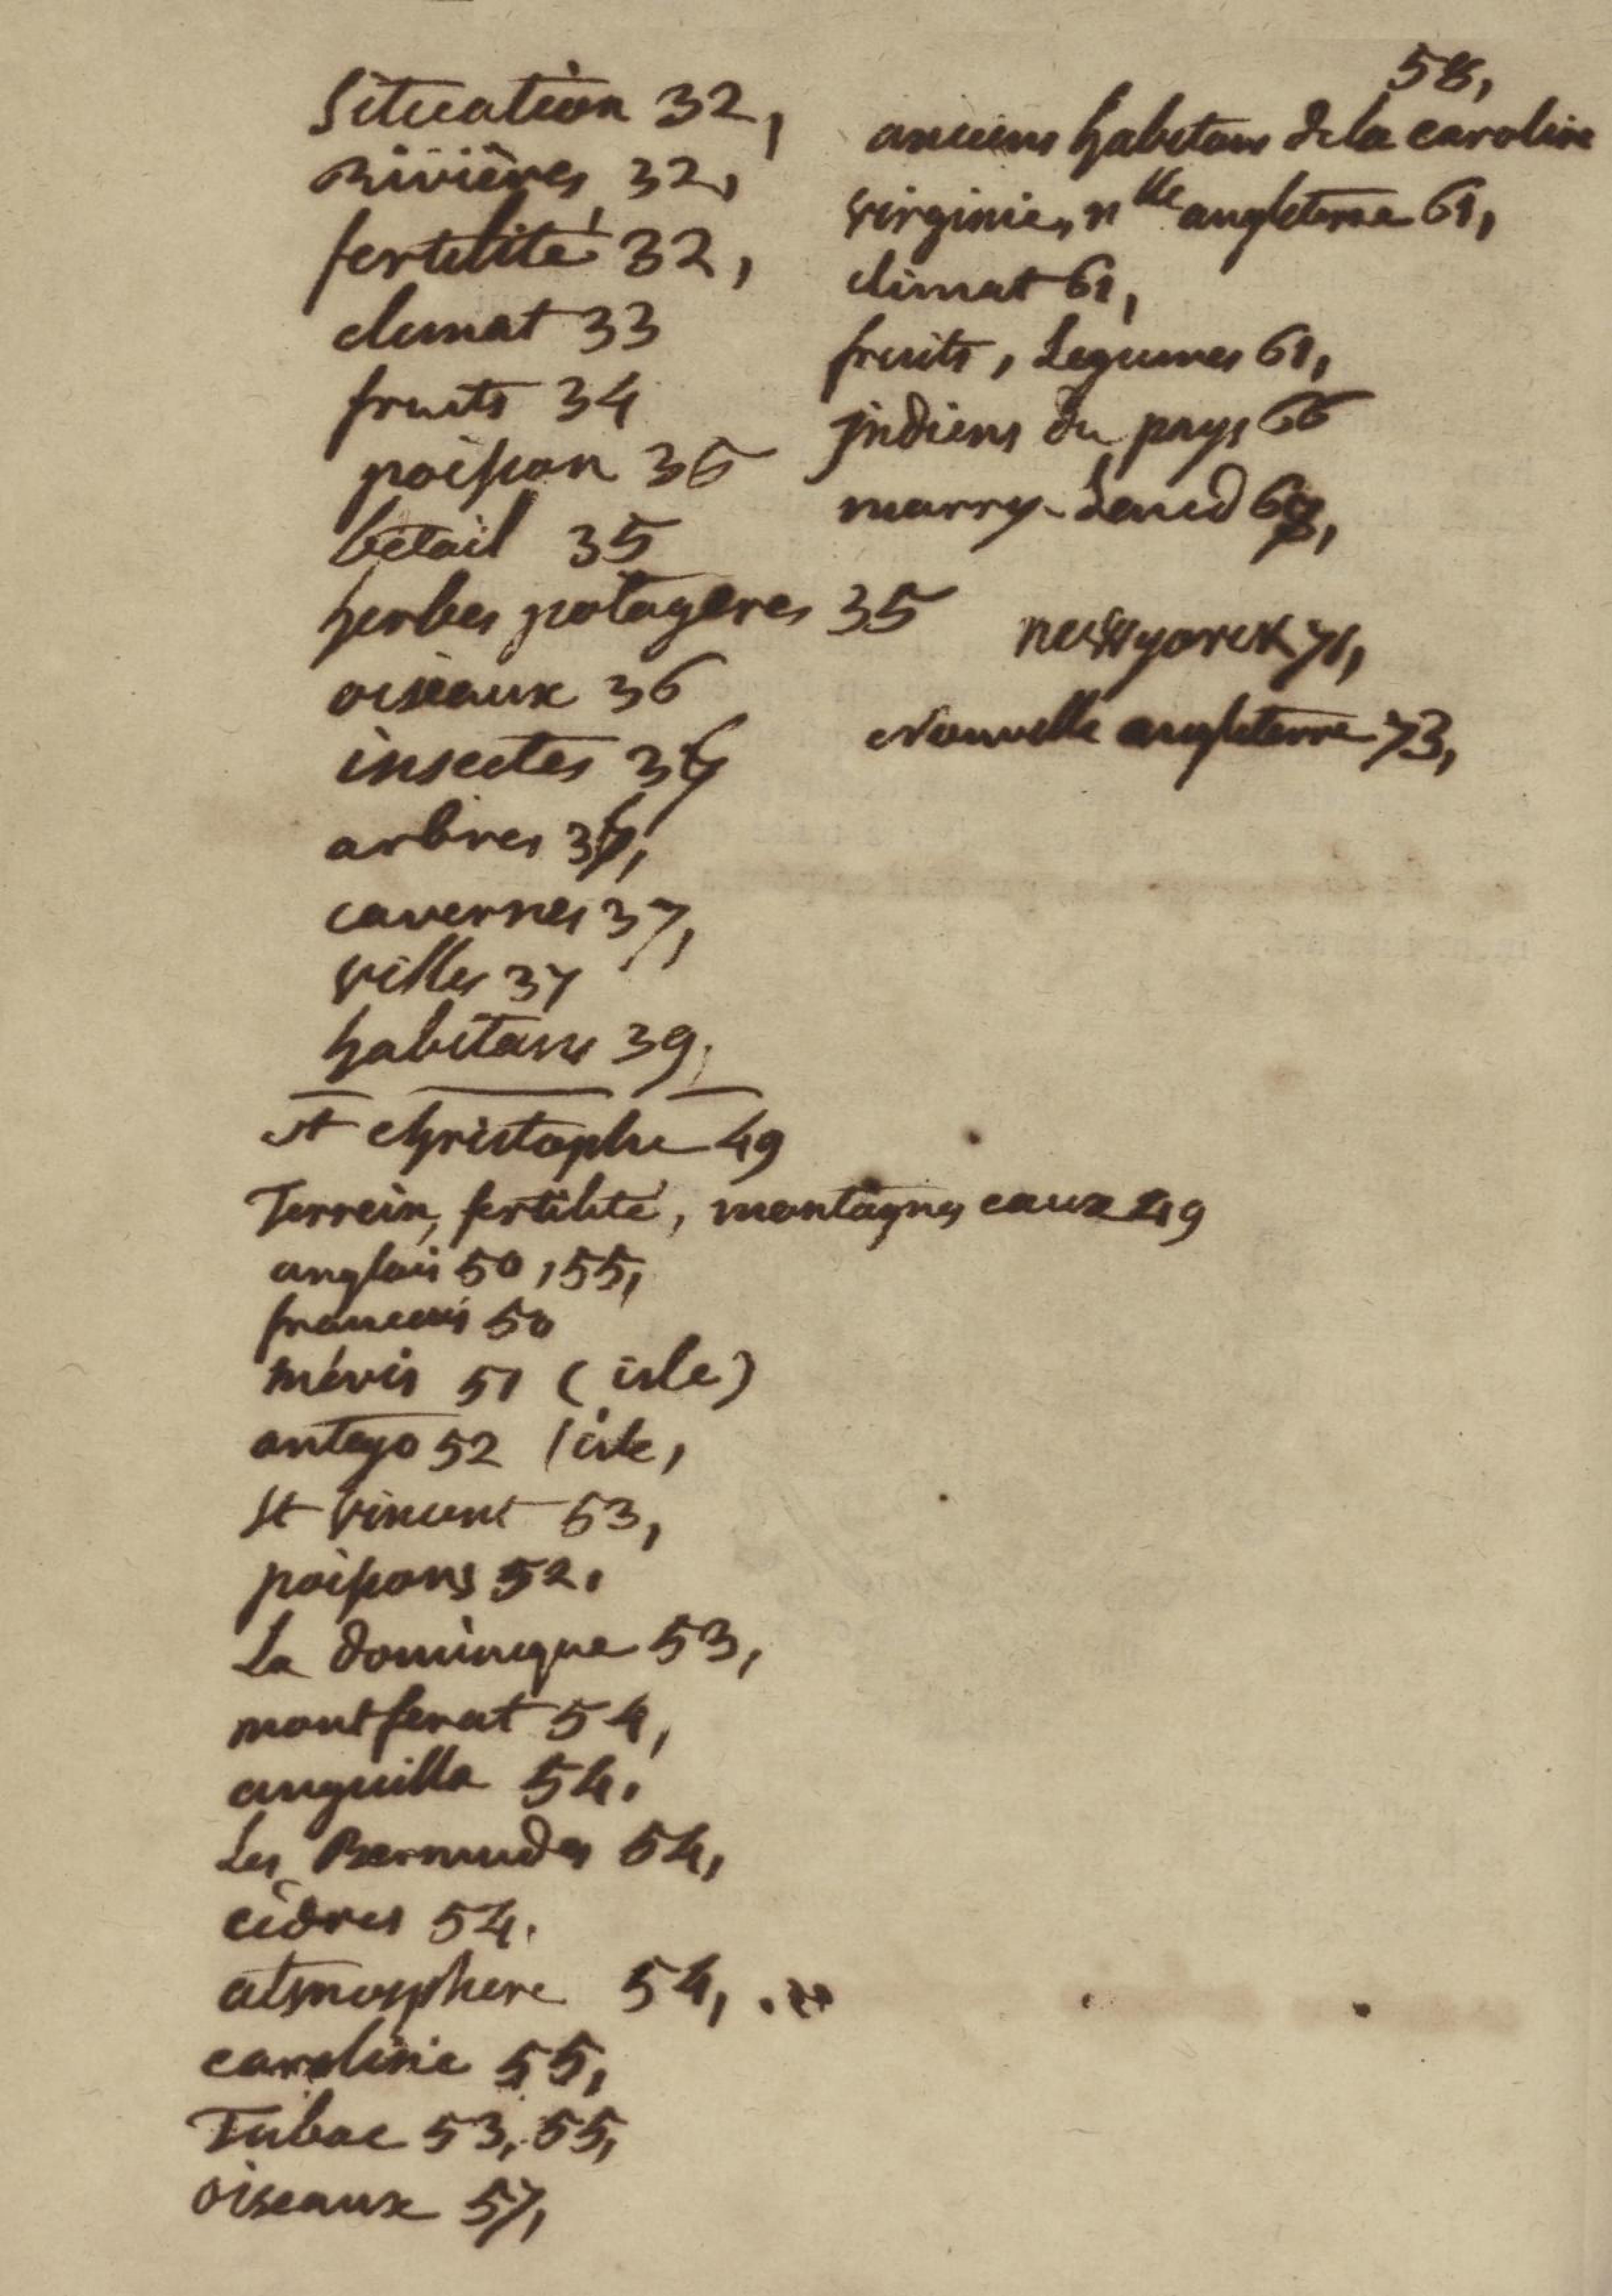 Situation 32,
Rivières 32,
fertilité 32,
climat 33
fruits 34
poisson 36
betail 35
herbes potageres 35
oiseaux 36
insectes
arbres
cavernes 37,
villes 37
habitans 39,
st christophe 49
Terrein, fertilité, montagnes eaux 49
anglais 50, 55,
francois 50
mévis 51 (isle)
antego 52 (isle,
St Vincent 53,
poissons 52,
La dominique 53,
montferat 54,
anguilla 54,
Les Bermudes 54,
cédres 54.
atmosphere 54,
caroline 55,
Tabac 53, 55,
oiseaux 57,
58,
anciens habitans de la caroline
virginie, nlle angleterre 61,
climat 61,
fruits, Legumes 61,
jndiens du pays 66
marry-Land
newyorck 71,
Nouvelle angleterre 73,